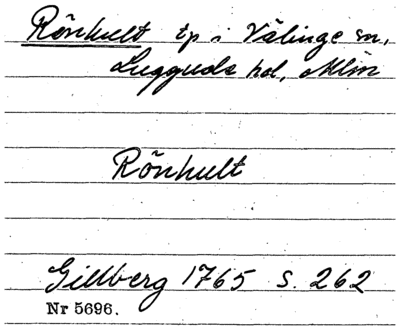 Rönhult tp i Välinge sn,
Luggude hd, Mlm
Rönhult
Gillberg 1765 s. 262
Nr 5696.